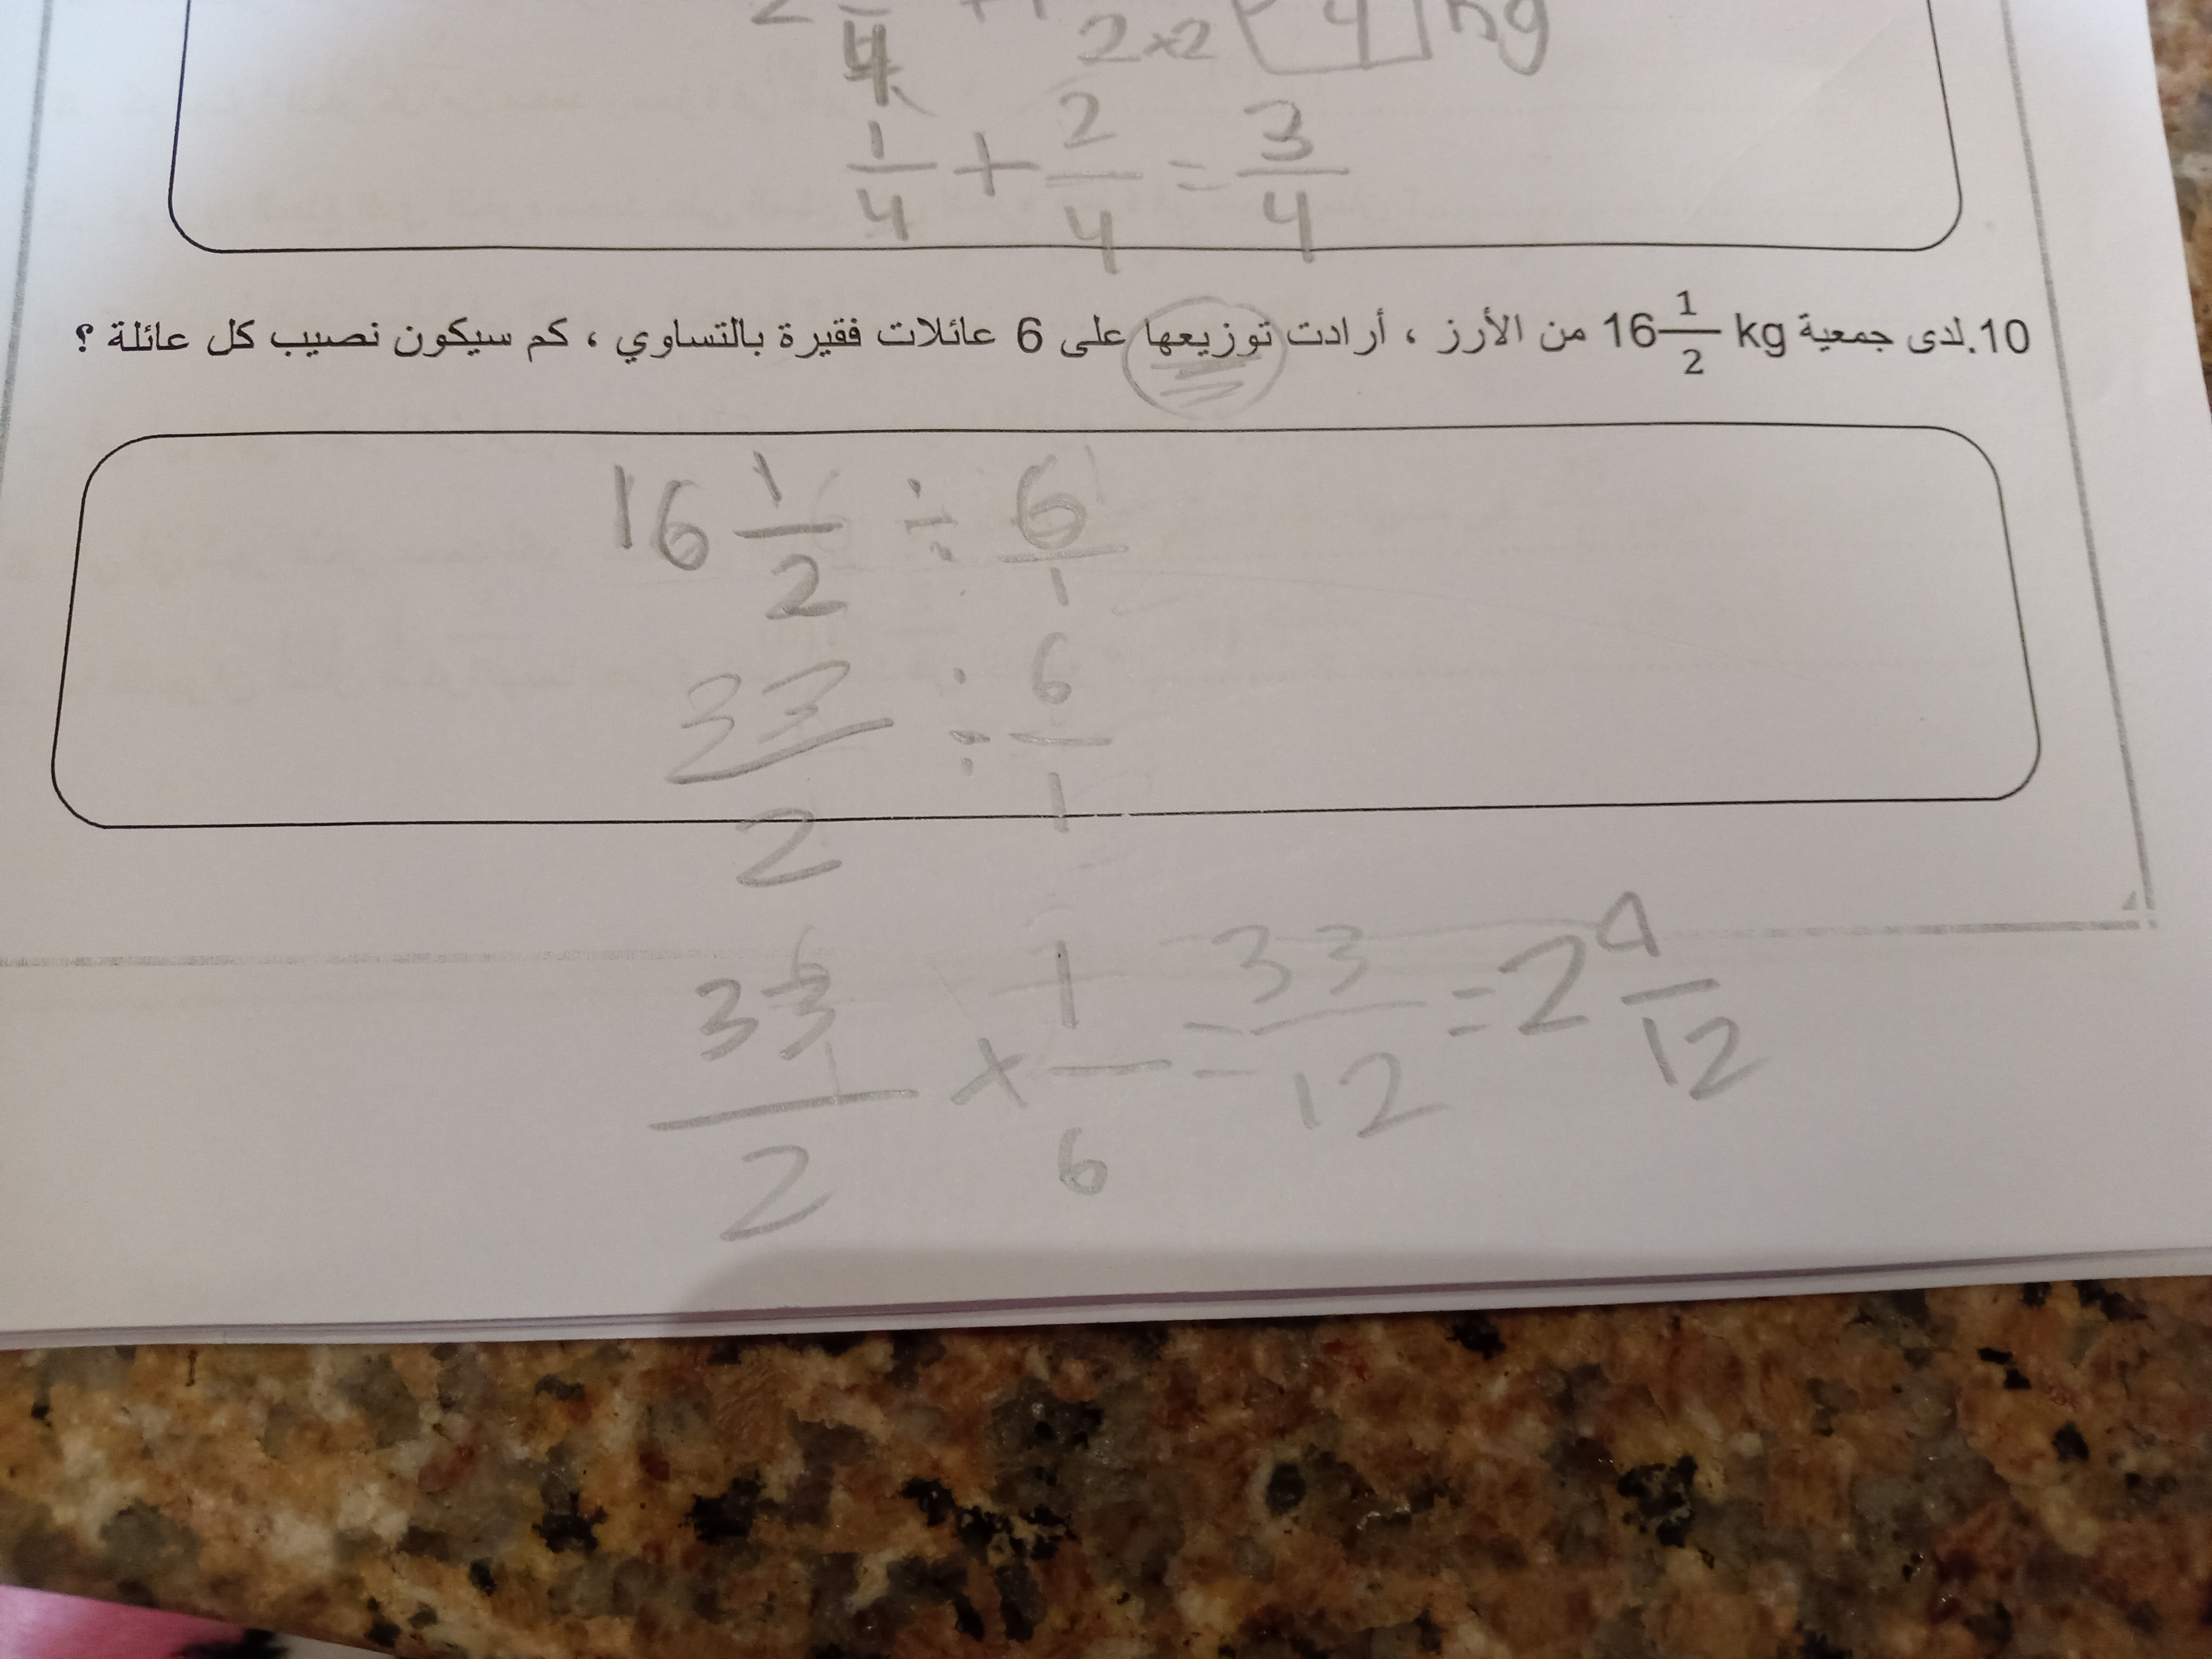 2 /4 + 1 /2×2 4 kg
1/4 + 2/4 = 3/4
10.لدى جمعية 16 1/2 kg من الأرز ، أرادت توزيعها على 6 عائلات فقيرة بالتساوي ، كم سيكون نصيب كل عائلة ؟
16 1/2 ÷ 6/1
33/2 ÷ 6/1
33/2 × 1/6 = 33/12 = 2 9/12